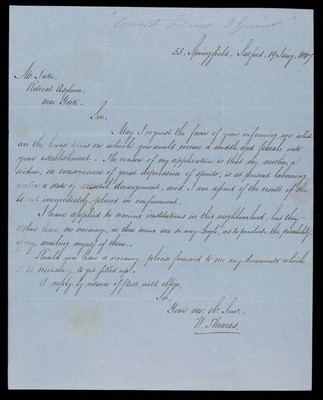 53, Springfield, Salford, 19 Jany, 1847
Mr. Tuke,
Retreat Asylum,
near York.
Sir,
May I request the favor of your informing me what
are the lowest terms on which you would receive a middle aged female into
your establishment. The reason of my application is that my mother, a
widow, in consequence of great depression of spirits, is at present labouring
under a state of mental derangement, and I am afraid of the result if she
is not immediately placed in confinement.
I have applied to various institutions in this neighbourhood, but they
either have no vacancy, or their terms are so very high, as to preclude the possibility
of my availing myself of them.
Should you have a vacancy, please forward to me any documents which
it is necessary to get filled up.
A reply by return of Post will oblige,
Sir,
Your mo. Ob. Servt.
W. Thomas.